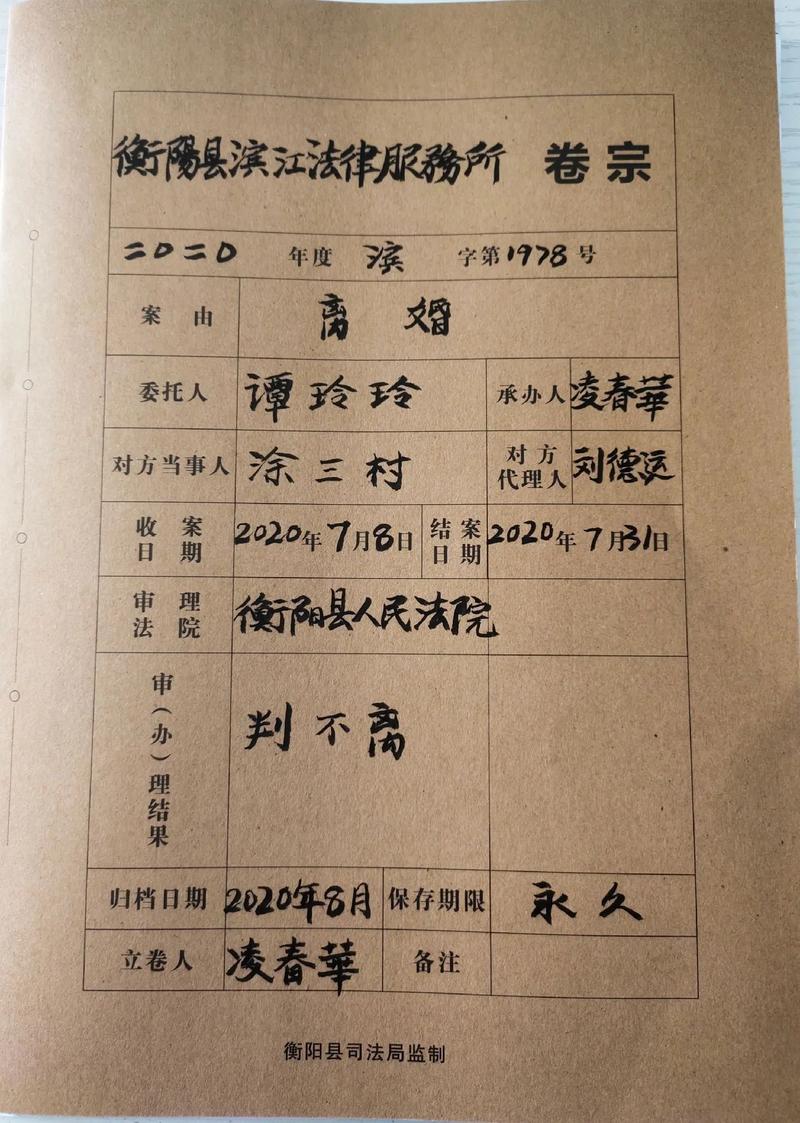 衡陽县滨江法律服務所 卷宗
二〇二〇 年度 滨 字第1978号
案由 离婚
委托人 谭玲玲 承办人 凌春華
对方当事人 涂三村 对方代理人 刘德运
收案日期 2020年7月8日 结案日期 2020年7月31日
审理法院 衡阳县人民法院
审(办)理结果 判不离
归档日期 2020年8月 保存期限 永久
立卷人 凌春華 备注
衡阳县司法局监制